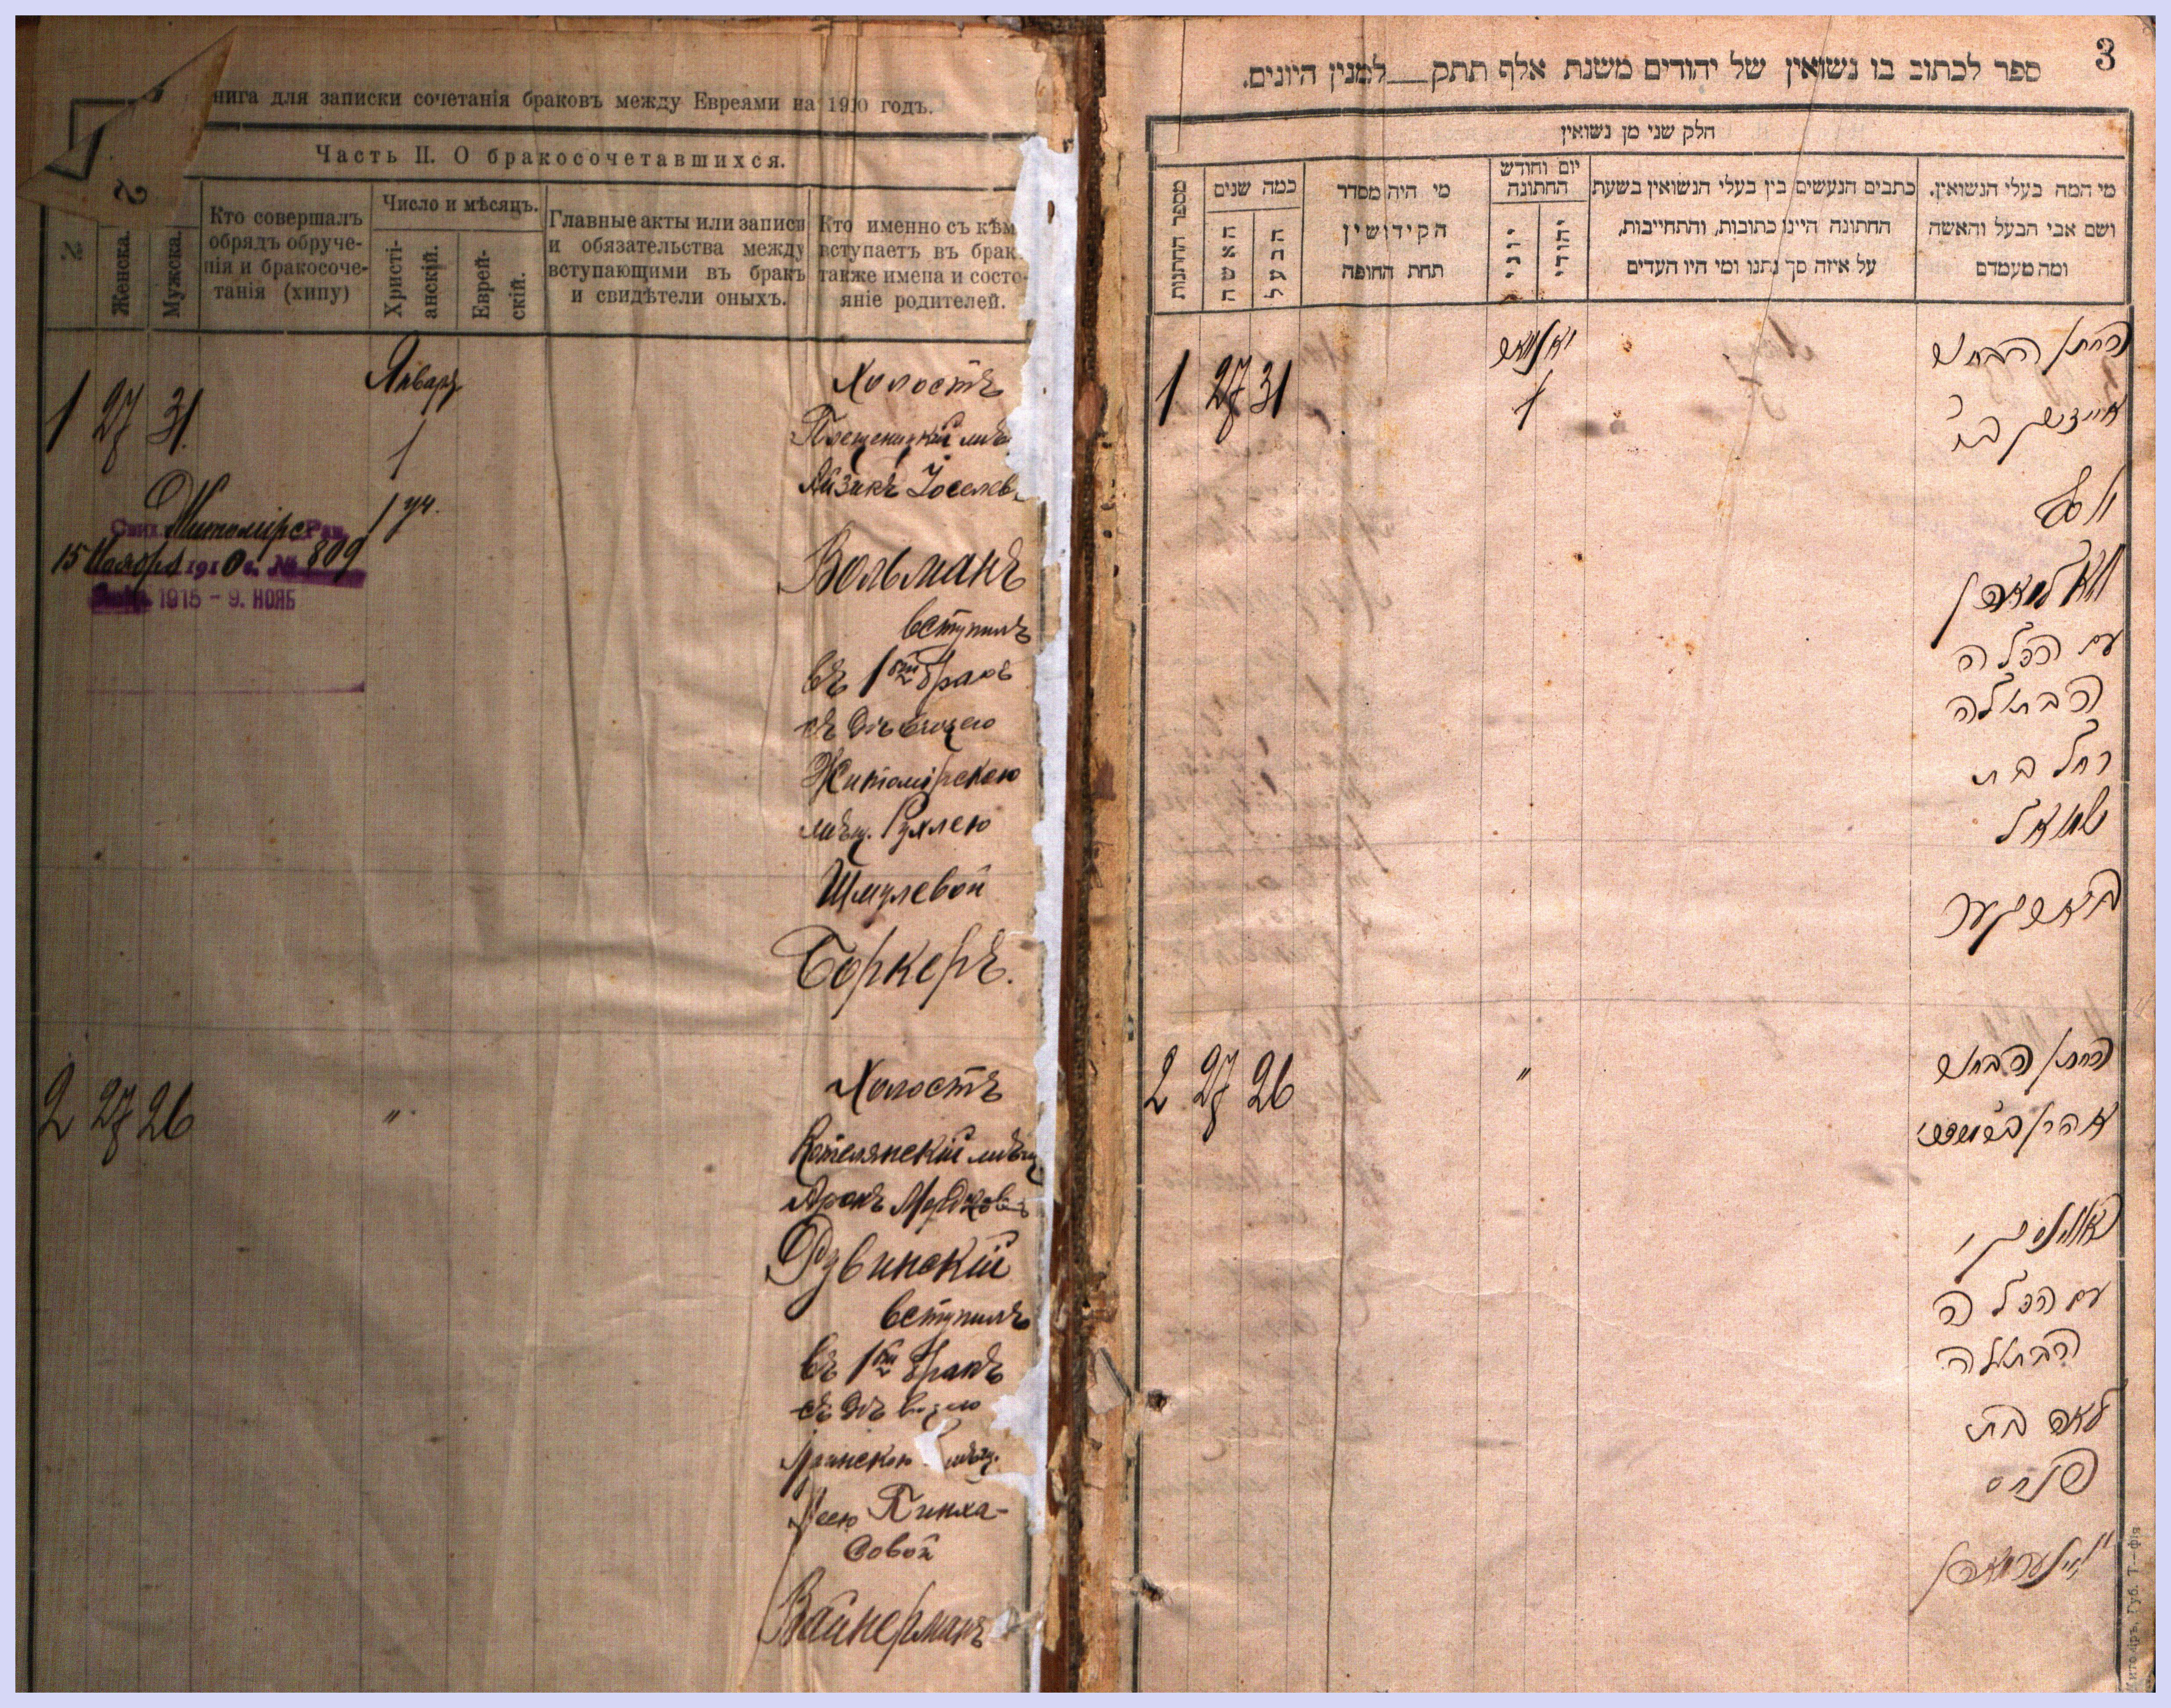 Книга для записки сочетанія браковъ между Евреями на 1910 годъ.
Часть II. О бракосочетавшихся.
№
Женска.
Мужска.
Кто совершалъ
обрядъ обруче-
нія и бракосоче-
танія (хипу)
Число и мѣсяцъ.
Христі-
анскій.
Еврей-
скій.
Главные акты или записи
и обязательства между
вступающими въ бракъ
и свидѣтели оныхъ.
Кто именно съ кѣм
вступаетъ въ брак
также имена и состо-
яніе родителей.
Январь
1 27 31.
1
1 уч.
Житомірс Рав.
15 Ноября 1910 г. № 809
1915 - 9. НОЯБ
Холостъ
мѣщ
Айзикъ Іоселев
Вольманъ
вступилъ
въ 1ый бракъ
съ дѣвицею
Житомірскою
мѣщ. Рухлею
Шмулевой
Боркеръ.
2 27 26
"
Холостъ
Котелянскій мѣщ
Аронъ
Рувинскій
вступилъ
въ 1ый бракъ
съ дѣвицею
мѣщ.
Леею Пинха-
совой
Вайнерманъ
3
ספר לכתוב בו נשואין של יהודים משנת אלף תתק למנין היונים.
חלק שני מן נשואין
מי המה בעלי הנשואין.
ושם אבי הבעל והאשה
ומה מעמדם
כתבים הנעשים בין בעלי הנשואין בשעת
החתונה היינו כתובות, והתחייבות,
על איזה סך נתנו ומי היו העדים
יום וחודש
החתונה
יהודי
יוני
מי היה מסדר
הקידושין
תחת החופה
כמה שנים
הבעל
האשה
מספר החתנות
1 27 31
יאנואר
1
החתן הבחור
יוסף
וואלמאן
עם הכלה
הבתולה
רחל בת
שמואל
2 27 26
"
החתן הבחור
אהרן
עם הכלה
הבתולה
לאה בת
פנחס
וויינערמאן